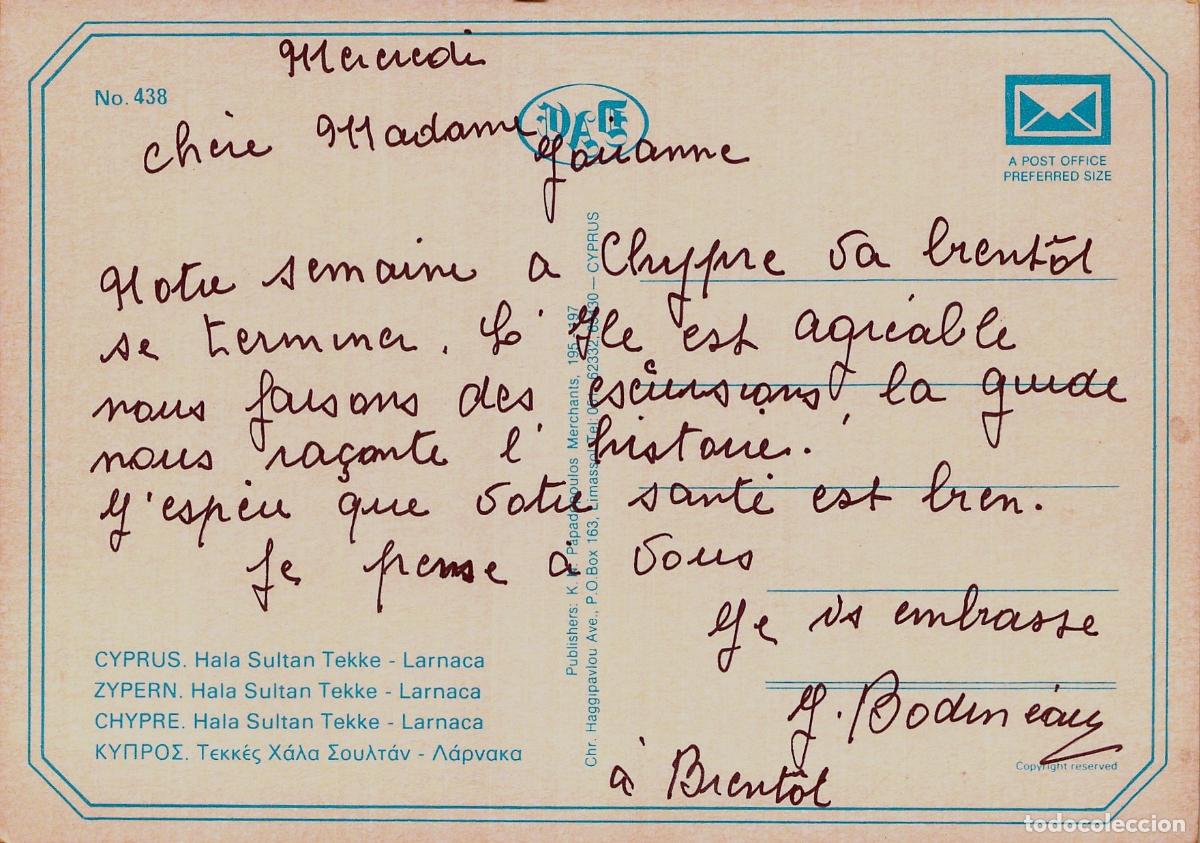 Mercredi
No. 438
Chère Madame
Jouanne
PAE
A POST OFFICE
PREFERRED SIZE
Notre semaine a Chypre va bientôt
se terminer. L'Ile est agréable
nous faisons des escursions, la guide
nous raçonte l'histoire.
J'espère que votre santé est bien.
Je pense à vous
Je vs embrasse
J. Bodineau
à Bientôt
CYPRUS. Hala Sultan Tekke - Larnaca
ZYPERN. Hala Sultan Tekke - Larnaca
CHYPRE. Hala Sultan Tekke - Larnaca
ΚΥΠΡΟΣ. Τεκκές Χάλα Σουλτάν - Λάρνακα
Publishers: K. Papadopoulos Merchants, 195
Chr. Haggipavlou Ave., P.O.Box 163, Limassol Tel: 62332, — CYPRUS
Copyright reserved
todocoleccion